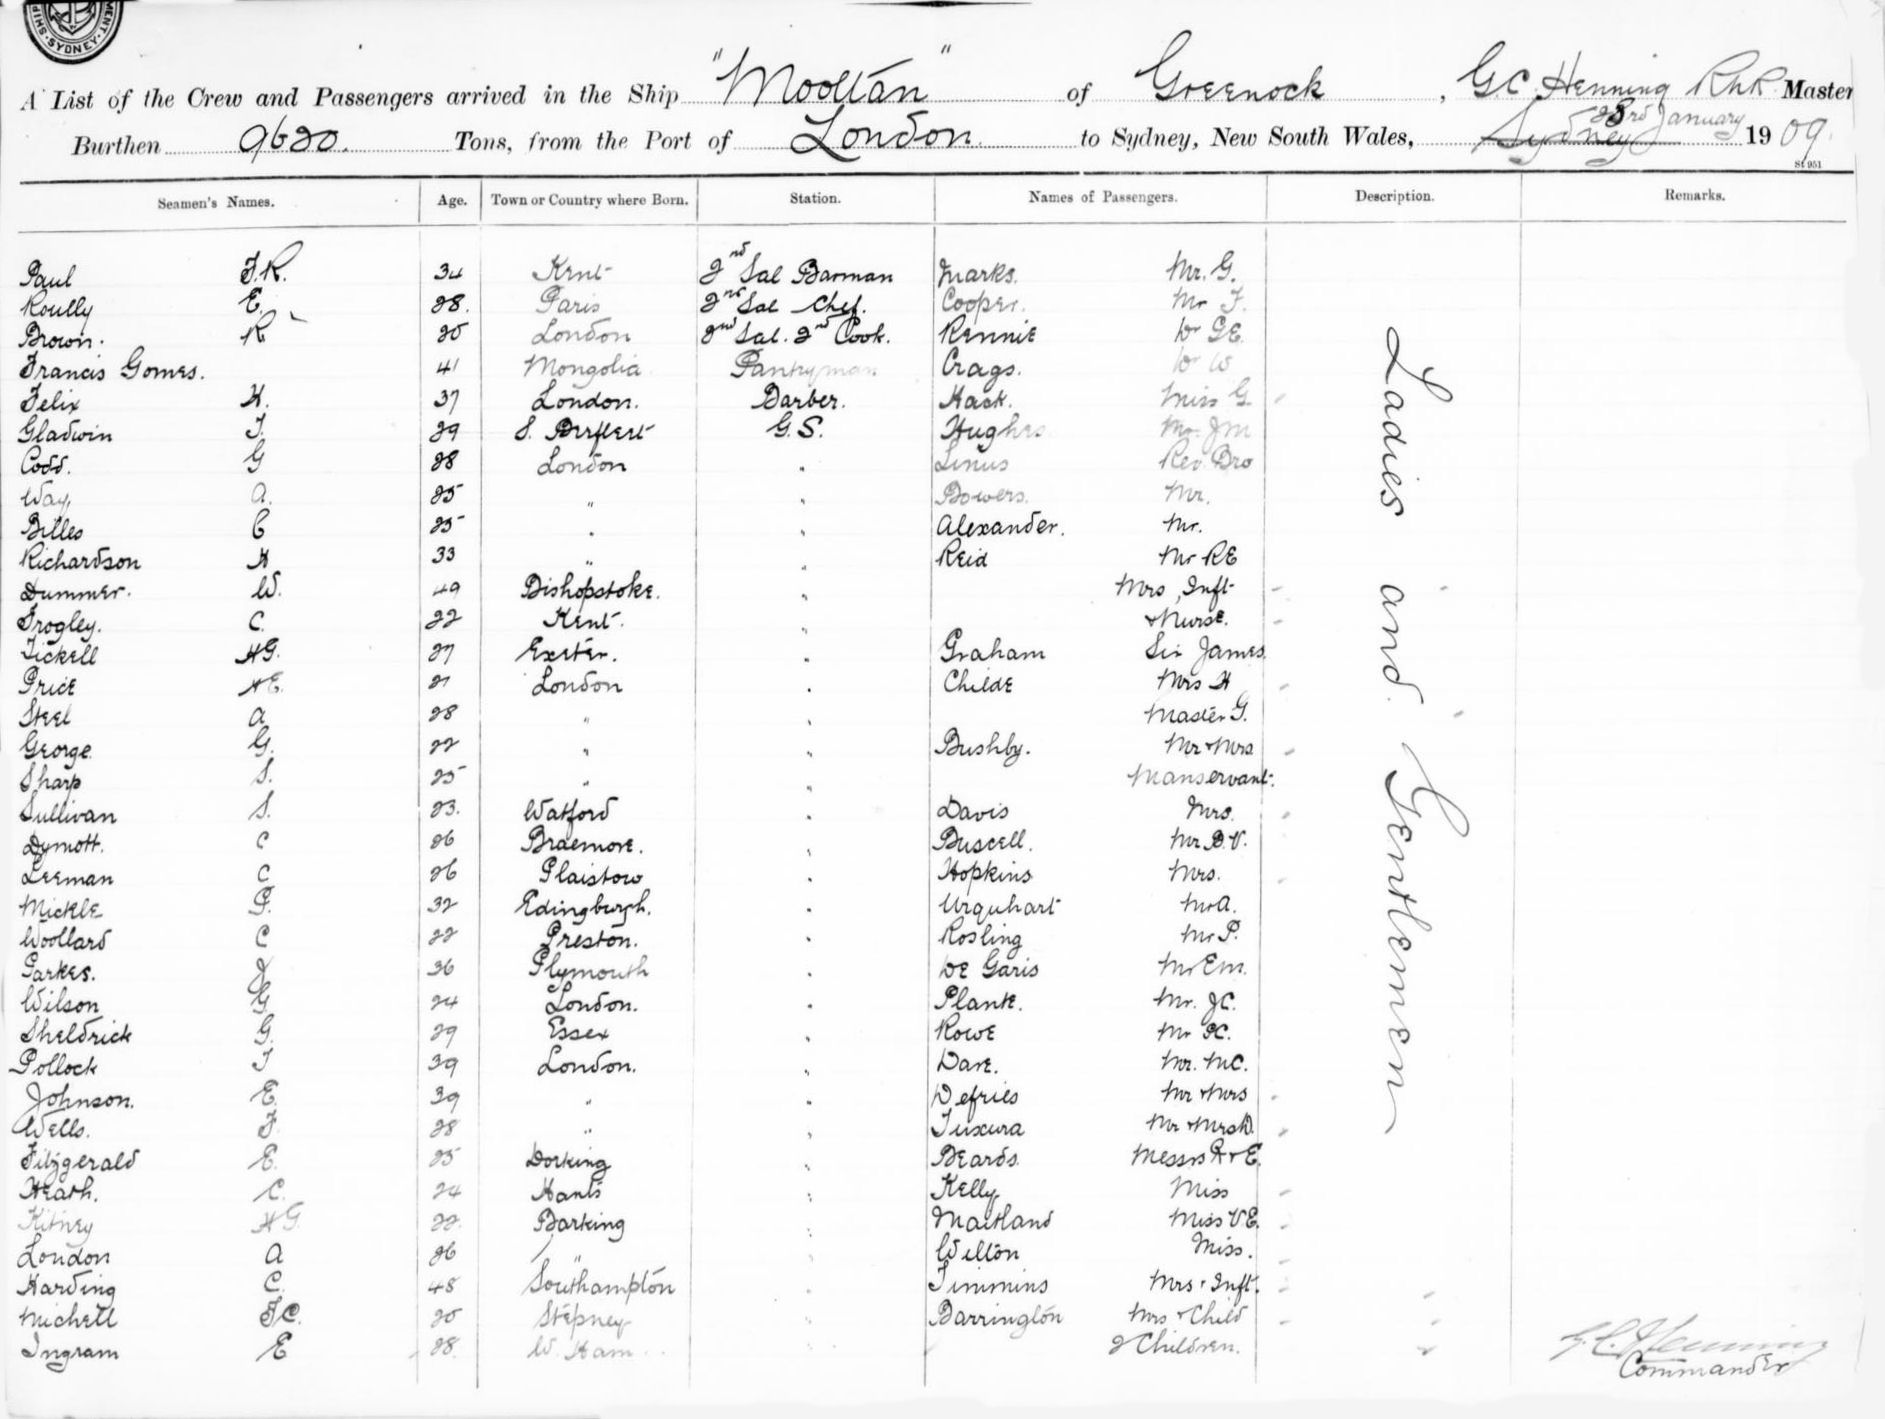 SYDNEY
"Mooltan" of Greenock, G.C. Henning RNR Master
A List of the Crew and Passengers arrived in the Ship
Burthen 9620. Tons, from the Port of London to Sydney, New South Wales, Sydney 23rd January 1909.
St 951
Seamen's Names. Age. Town or Country where Born. Station. Names of Passengers. Description. Remarks.
Paul F.R. 34 Kent 2nd Sal Barman Marks. Mr. G.
Roully E. 28. Paris 2nd Sal Chef. Cooper. Mr F.
Brown. R 20 London 2nd Sal. 2nd Cook. Rennie Dr GE.
Francis Gomes. 41 Mongolia Pantryman Crags. Dr W
Felix H. 37 London. Barber. Hack. Miss G
Gladwin F. 29 G.S. Hughes Mr. JM
Codd. G 28 London " Linus Rev. Bro
Way, A. 25 " " Bowers. Mr.
Billes C 25 " " Alexander. Mr.
Richardson H 33 " " Reid Mr RE
Dummer. W. 49 Bishopstoke. " Mrs, Inft
Frogley. C. 22 Kent. " & Nurse.
Tickell HG. 27 Exeter. " Graham Sir James
Price HE. 21 London " Childe Mrs H
Steel A 28 " " Master G.
George. G. 22 " " Bushby. Mr & Mrs
Sharp S. 25 " " Manservant.
Sullivan S. 23. Watford " Davis Mrs.
Dymott. C 26 Braemore. " Buscell. Mr. B.V.
Leeman C 26 Plaistow " Hopkins Mrs.
Mickle G. 32 Edingburgh. " Urquhart Mr A.
Woollard C 22 Preston. " Rosling Mr P.
Parkes. J 36 Plymouth " De Garis Mr Em.
Wilson G 24 London. " Plank. Mr. JC.
Sheldrick G. 29 Essex " Rowe Mr
Pollock T 39 London. " Dare. Mr. MC.
Johnson. E. 39 " " Defries Mr & Mrs
Wells. F. 28 " " Tuxura Mr & Mrs
Fitzgerald E. 25 Dorking " Beards. Messrs R & E.
Heath. C. 24 Hants " Kelly Miss
Kitney HG. 22. Barking " Maitland Miss VE.
London A 26 " " Wilton Miss.
Harding C. 48 Southampton " Timmins Mrs & Inft.
Michell FC. 20 Stepney " Barrington Mrs & Child
Ingram E 28. W. Ham " 2 Children.
Ladies and Gentlemen
G.C. Henning
Commander